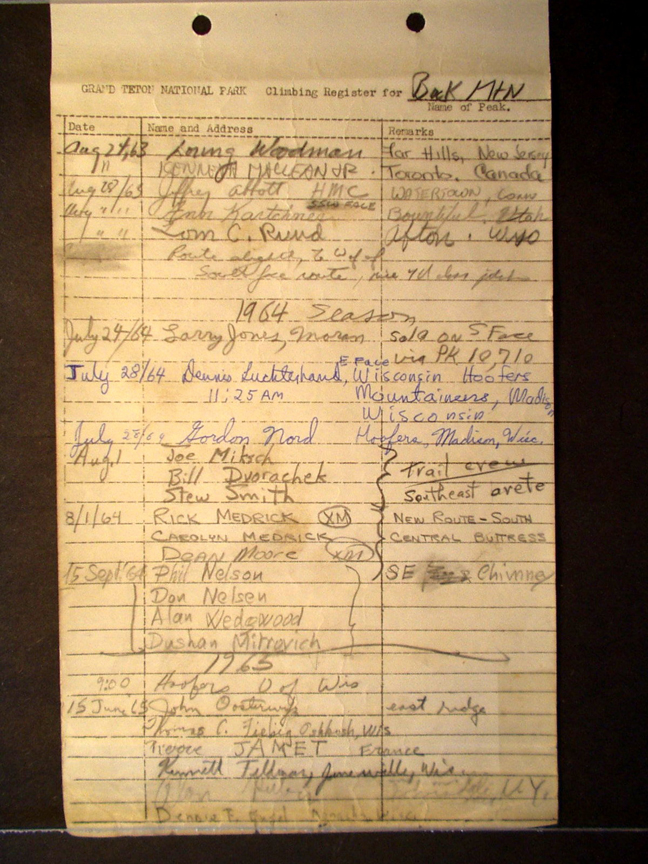 GRAND TETON NATIONAL PARK Climbing Register for Buck MTN
Name of Peak.
Date Name and Address Remarks
Aug 27,63 Loring Woodman Far Hills, New Jersey
" KENNETH MACLEAN JR. Toronto, Canada
Aug 28/63 Jeffrey Abbott HMC WATERTOWN, Conn
SSW FACE
" " Kartchner Bountiful, Utah
" " Tom C. Rund Afton, WYO
Route
South face route,
1964 Season
July 24/64 Larry Jones, Moran Solo on S Face
via PK 10,710
July 28/64 Dennis Luchterhand, E Face Wisconsin Hoofers
11:25 AM Mountaineers, Madison
Wisconsin
July 28/64 Gordon Nord Hoofers, Madison, Wisc.
Aug. 1 Joe Mitsch
Bill Dvorachek Trail crew
Stew Smith Southeast arete
8/1/64 RICK MEDRICK XM NEW ROUTE - SOUTH
CAROLYN MEDRICK CENTRAL BUTTRESS
DEAN MOORE XM
15 Sept '64 Phil Nelson SE Chimney
Don Nelsen
Alan Wedgwood
Dushan Mitrovich
1965
9:00 Hoofers U of Wis
15 June 65 John east ridge
Thomas C. Fiebig Oshkosh, Wis
JAMET France
Kenneth
N.Y.
Dennis E.